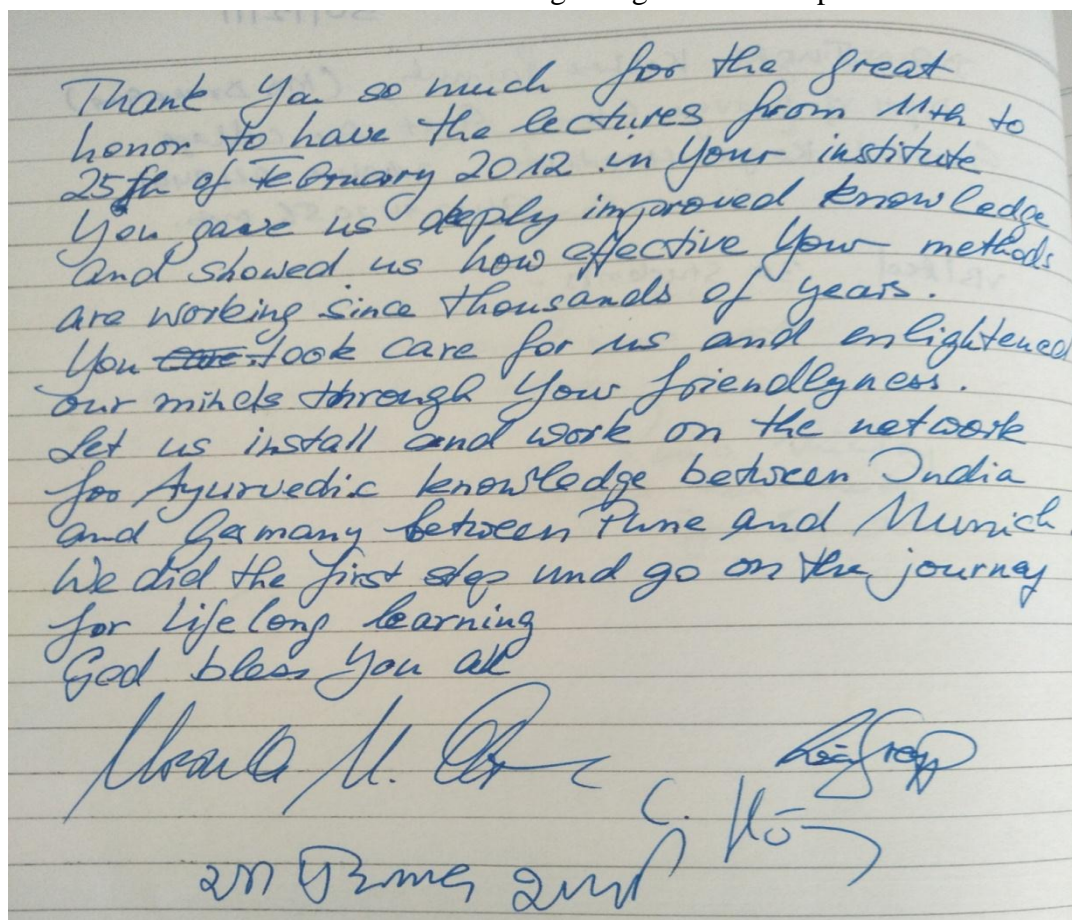 Thank You so much for the great
honor to have the lectures from 11th to
25th of February 2012 in Your institute
You gave us deeply improved knowledge
and showed us how effective Your methods
are working since thousands of years.
You took care for us and enlightened
our minds through Your friendlyness.
Let us install and work on the network
for Ayurvedic knowledge between India
and Germany between Pune and Munich.
We did the first step und go on the journey
for Lifelong learning
God bless You all
Ursula M.
C.